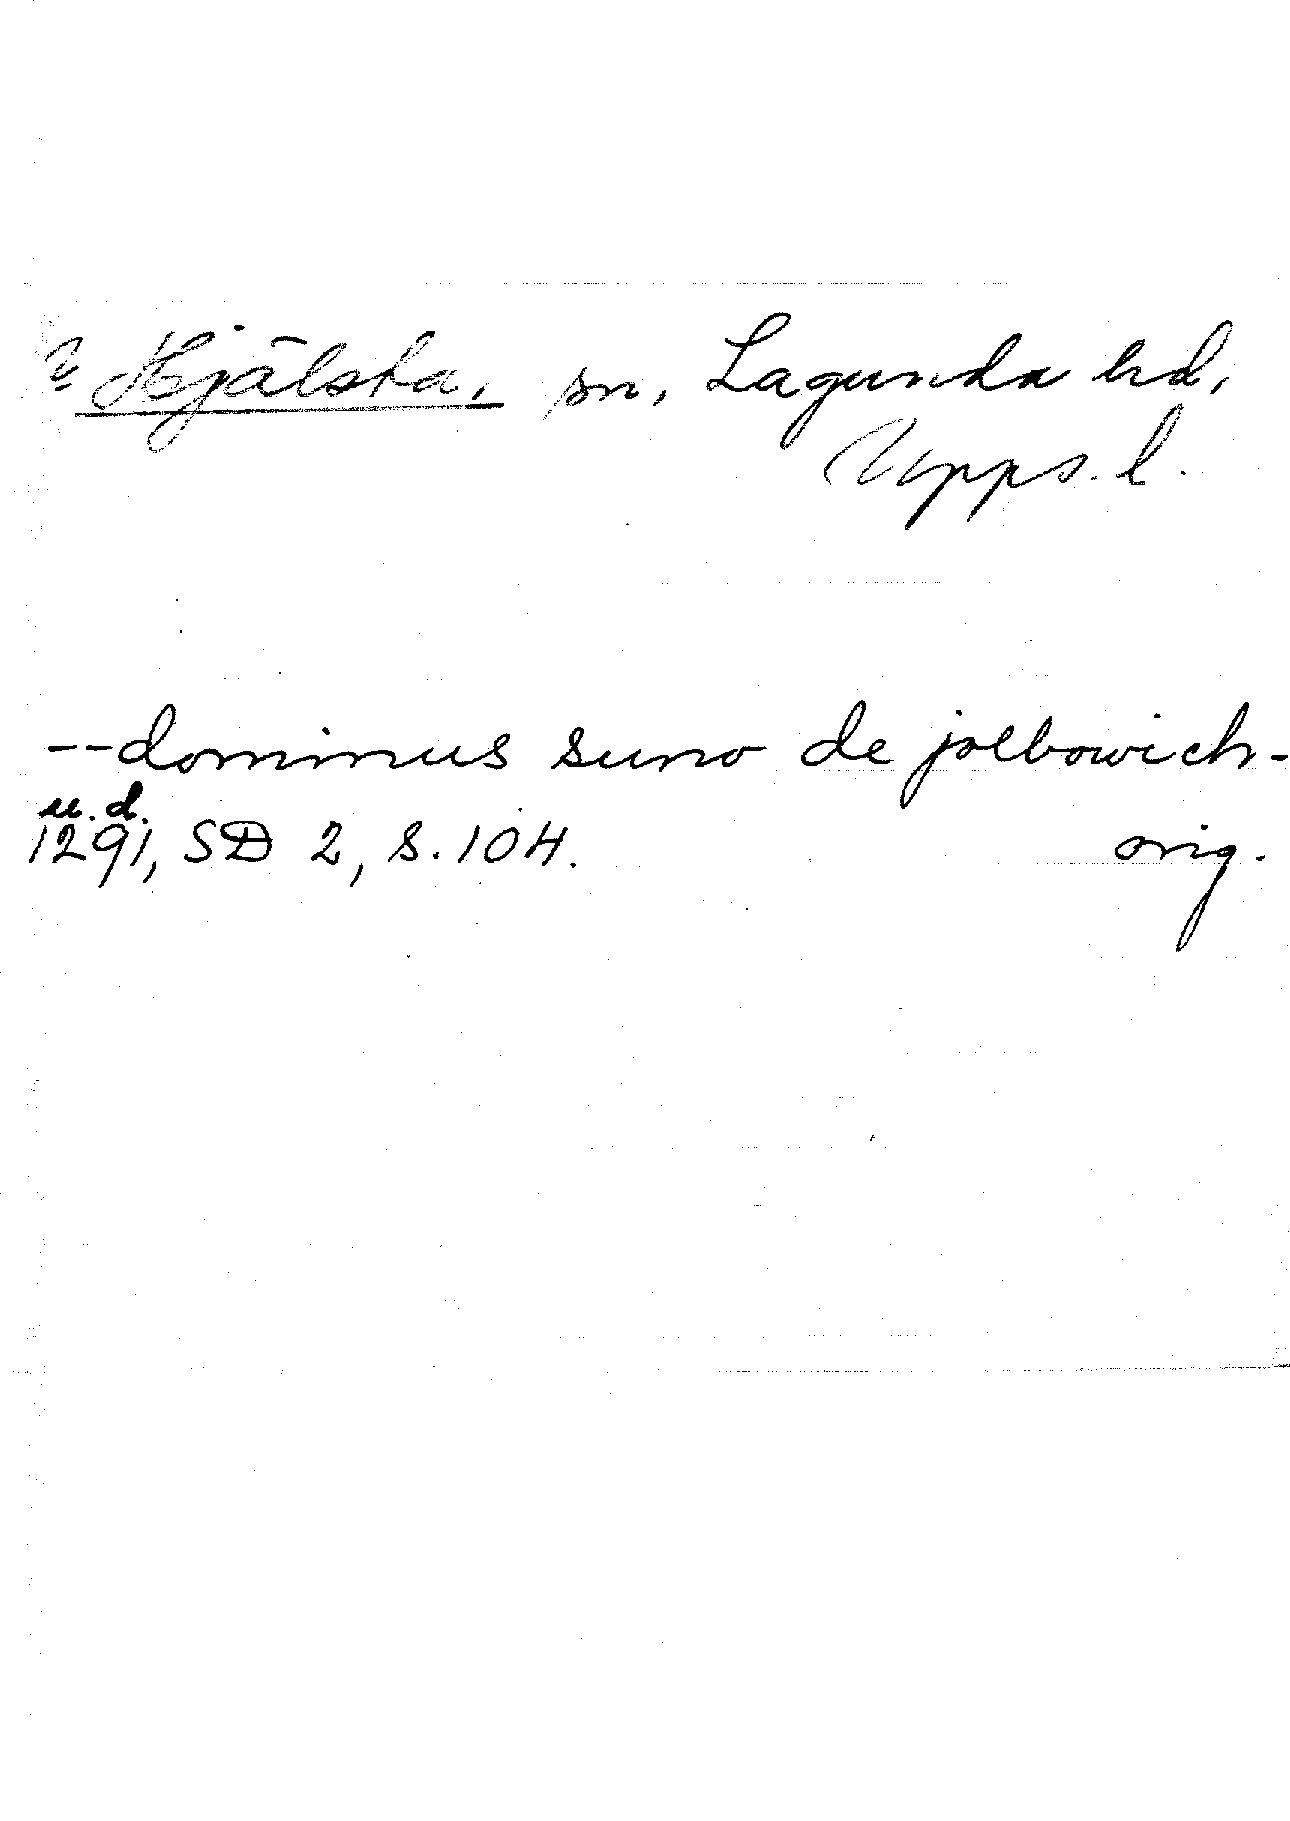 ? Hjälsta, sn, Lagunda hd,
Upps. l.
--dominus suno de jolbowich-
u.d.
1291, SD 2, s. 104. orig.